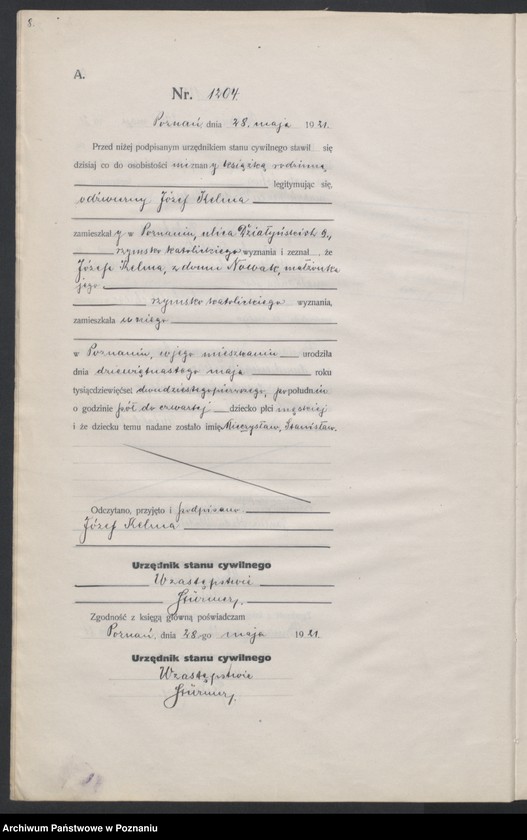 8.
A.
Nr. 1204.
Poznań dnia 28. maja 1921.
Przed niżej podpisanym urzędnikiem stanu cywilnego stawił się
dzisiaj co do osobistości nieznany książką rodzinną
legitymując się,
odźwierny Józef Kelma
zamieszkały w Poznaniu, ulica Działyńskich 9.,
rzymsko katolickiego wyznania i zeznał, że
Józefa Kelma, z domu Nowak, małżonka
jego
rzymsko katolickiego wyznania,
zamieszkała u niego
w Poznaniu, w jego mieszkaniu urodziła
dnia dziewiętnastego maja roku
tysiącdziewięćset dwudziestegopierwszego, po południu
o godzinie pół do czwartej dziecko płci męskiej
i że dziecku temu nadane zostało imię Mieczysław, Stanisław.
Odczytano, przyjęto i podpisano
Józef Kelma
Urzędnik stanu cywilnego
W zastępstwie
Zgodność z księgą główną poświadczam
Poznań, dnia 28-go maja 1921.
Urzędnik stanu cywilnego
W zastępstwie
Archiwum Państwowe w Poznaniu